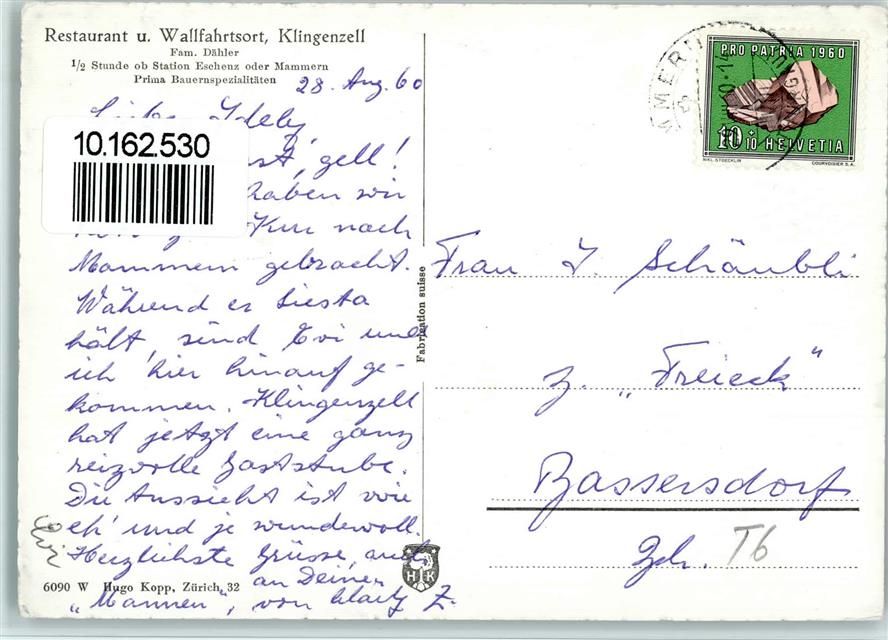 Restaurant u. Wallfahrtsort, Klingenzell
Fam. Dähler
1/2 Stunde ob Station Eschenz oder Mammern
Prima Bauernspezialitäten
28. Aug. 60
Liebe Idely
10.162.530
gell!
haben wir
Kur nach
Mammern gebracht.
Während er Siesta
hält, sind Evi und
ich hier hinauf ge-
kommen. Klingenzell
hat jetzt eine ganz
reizvolle Gaststube.
Die Aussicht ist wie
eh' und je wundervoll.
Herzlichste Grüsse, auch
an Deine
"Mannen", von
Evi
6090 W Hugo Kopp, Zürich 32
H K
Fabrication suisse
PRO PATRIA 1960
10+10 HELVETIA
NIKL. STOECKLIN
COURVOISIER S.A.
Frau I. Schäubli
z. "Freieck"
Bassersdorf
Zch. T6